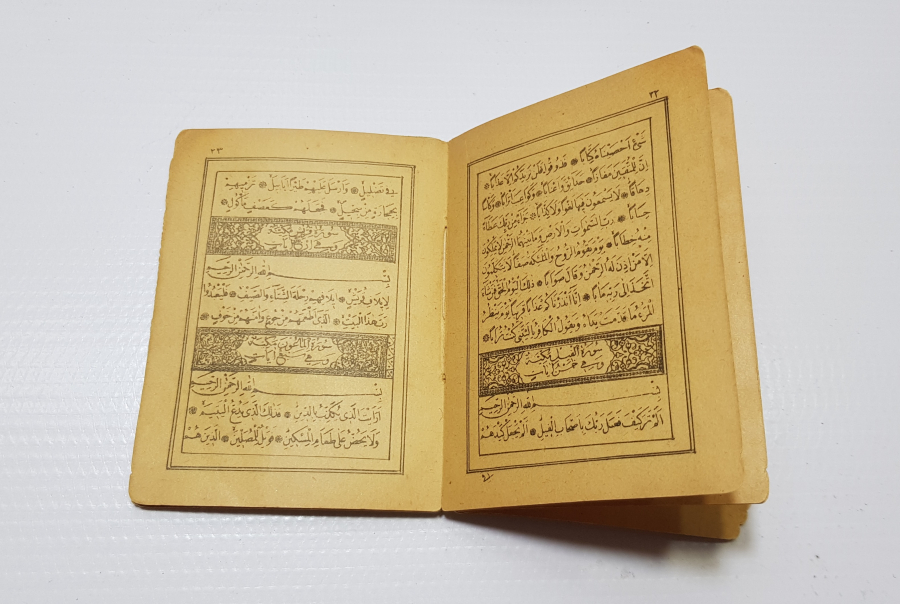 ٢٢
شَيْءٍ اَحْصَيْنَاهُ كِتَابًا فَذُوقُوا فَلَنْ نَزِيدَكُمْ اِلَّا عَذَابًا
اِنَّ لِلْمُتَّقِينَ مَفَازًا حَدَائِقَ وَاَعْنَابًا وَكَوَاعِبَ اَتْرَابًا وَكَأْسًا
دِهَاقًا لَا يَسْمَعُونَ فِيهَا لَغْوًا وَلَا كِذَّابًا جَزَاءً مِنْ رَبِّكَ عَطَاءً
حِسَابًا رَبِّ السَّمٰوَاتِ وَالْاَرْضِ وَمَا بَيْنَهُمَا الرَّحْمٰنِ لَا يَمْلِكُونَ
مِنْهُ خِطَابًا يَوْمَ يَقُومُ الرُّوحُ وَالْمَلٰئِكَةُ صَفًّا لَا يَتَكَلَّمُونَ
اِلَّا مَنْ اَذِنَ لَهُ الرَّحْمٰنُ وَقَالَ صَوَابًا ذٰلِكَ الْيَوْمُ الْحَقُّ فَمَنْ شَاءَ
اتَّخَذَ اِلٰى رَبِّهِ مَاٰبًا اِنَّا اَنْذَرْنَاكُمْ عَذَابًا قَرِيبًا يَوْمَ يَنْظُرُ
الْمَرْءُ مَا قَدَّمَتْ يَدَاهُ وَيَقُولُ الْكَافِرُ يَالَيْتَنِي كُنْتُ تُرَابًا
سورة الفيل مكية
وهي خمس آيات
بِسْمِ اللهِ الرَّحْمٰنِ الرَّحِيمِ
اَلَمْ تَرَ كَيْفَ فَعَلَ رَبُّكَ بِاَصْحَابِ الْفِيلِ اَلَمْ يَجْعَلْ كَيْدَهُمْ
٢٣
فِي تَضْلِيلٍ وَاَرْسَلَ عَلَيْهِمْ طَيْرًا اَبَابِيلَ تَرْمِيهِمْ
بِحِجَارَةٍ مِنْ سِجِّيلٍ فَجَعَلَهُمْ كَعَصْفٍ مَأْكُولٍ
سورة قريش مكية
وهي اربع آيات
بِسْمِ اللهِ الرَّحْمٰنِ الرَّحِيمِ
لِاِيلَافِ قُرَيْشٍ اِيلَافِهِمْ رِحْلَةَ الشِّتَاءِ وَالصَّيْفِ فَلْيَعْبُدُوا
رَبَّ هٰذَا الْبَيْتِ الَّذِي اَطْعَمَهُمْ مِنْ جُوعٍ وَاٰمَنَهُمْ مِنْ خَوْفٍ
سورة الماعون مكية
وهي سبع آيات
بِسْمِ اللهِ الرَّحْمٰنِ الرَّحِيمِ
اَرَاَيْتَ الَّذِي يُكَذِّبُ بِالدِّينِ فَذٰلِكَ الَّذِي يَدُعُّ الْيَتِيمَ
وَلَا يَحُضُّ عَلٰى طَعَامِ الْمِسْكِينِ فَوَيْلٌ لِلْمُصَلِّينَ الَّذِينَ هُمْ